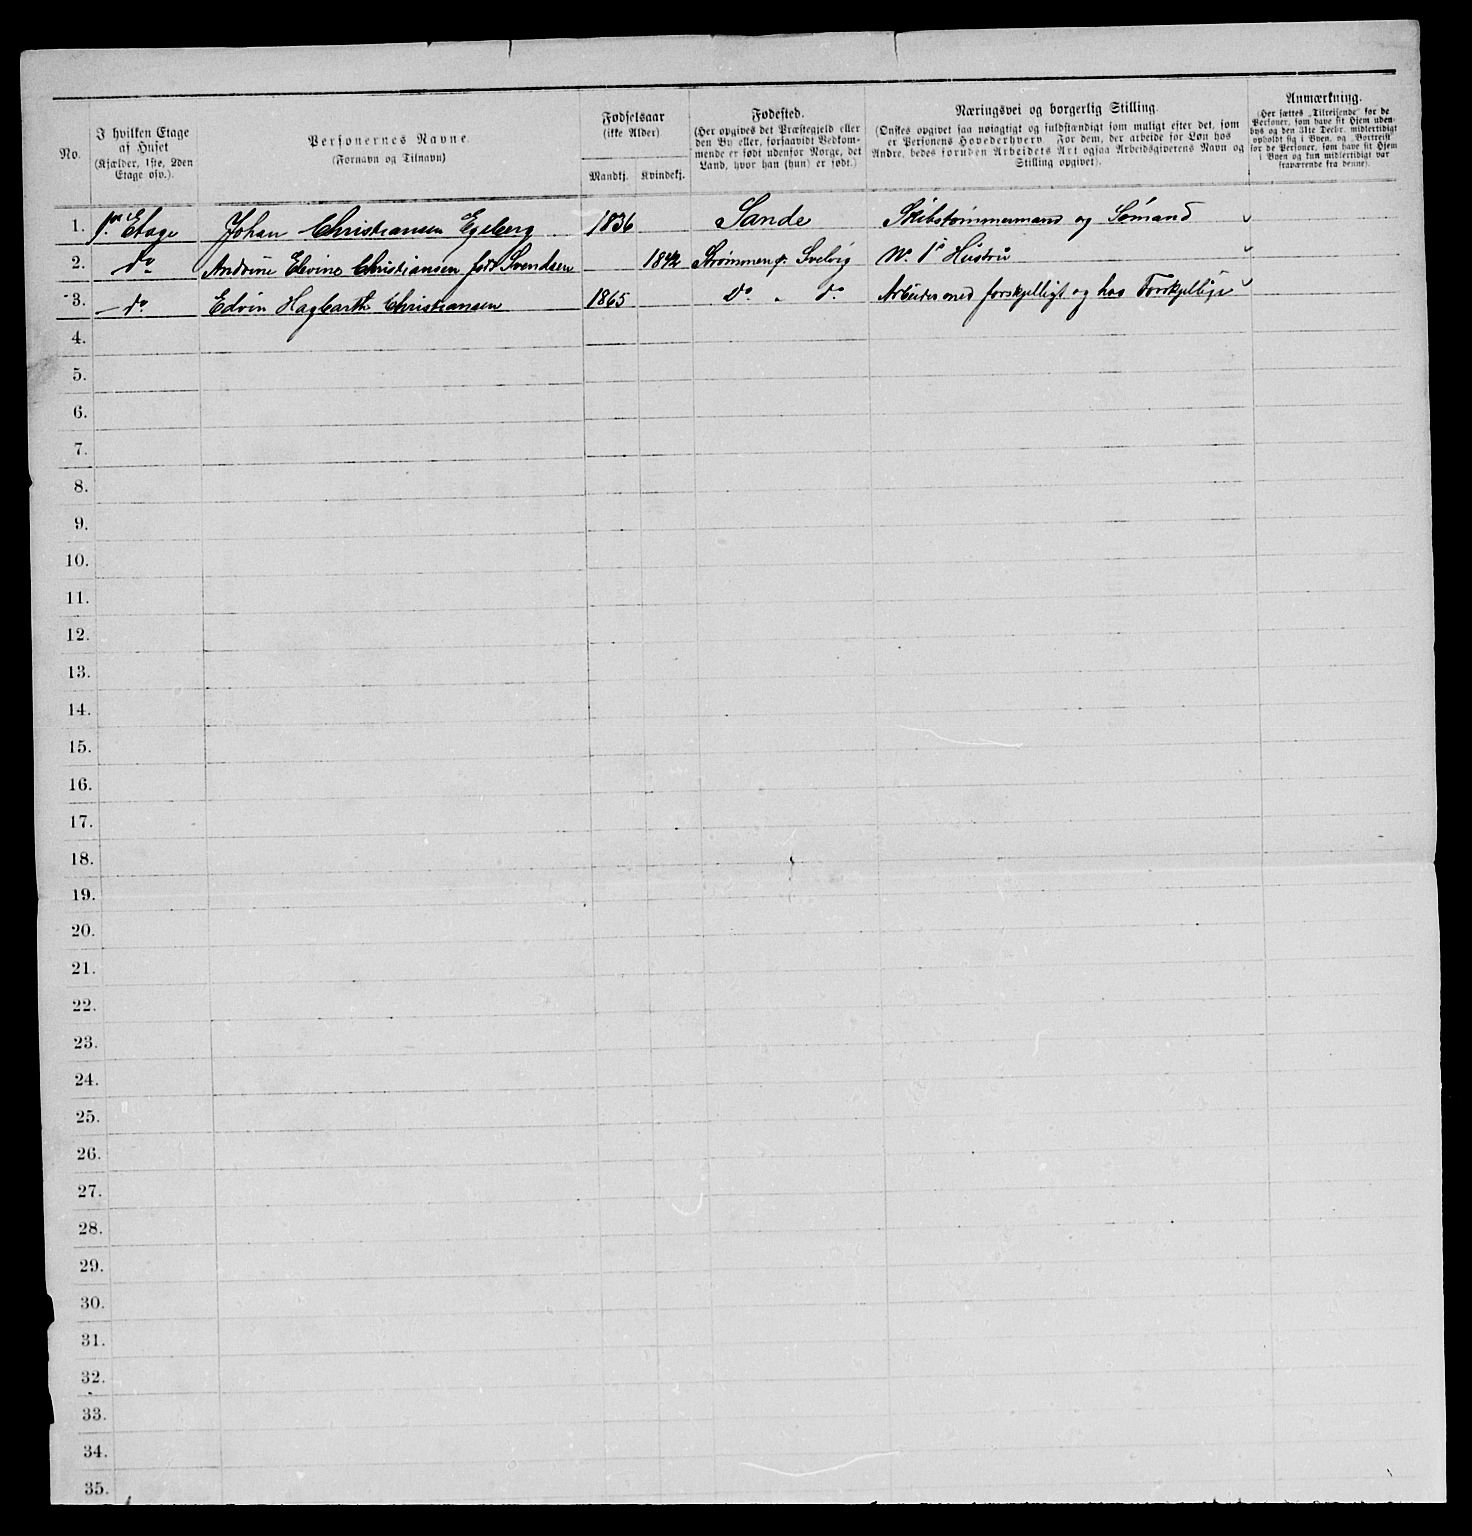 No.
I hvilken Etage
af Huset
(Kjælder, 1ste, 2den
Etage osv.).
Personernes Navne.
(Fornavn og Tilnavn)
Fødselsaar
(ikke Alder)
Mandkj.
Kvindekj.
Fødested.
(Her opgives det Præstegjeld eller
den By eller, forsaavidt Vedkom-
mende er født udenfor Norge, det
Land, hvor han (hun) er født.)
Næringsvei og borgerlig Stilling.
(Ønskes opgivet saa nøiagtigt og fuldstændigt som muligt efter det, som
er Personens Hovederhverv. For dem, der arbeide for Løn hos
Andre, bedes foruden Arbeidets Art ogsaa Arbeidsgiverens Navn og
Stilling opgivet).
Anmærkning.
(Her sættes „Tilreisende" for de
Personer, som have sit Hjem uden-
bys og den 31te Decbr. midlertidigt
opholdt sig i Byen, og „Bortreist"
for de Personer, som have sit Hjem
i Byen og kun midlertidigt var
fraværende fra denne).
1. Etage Johan Christiansen Egeberg 1836 Sande Skibstømmermand og Sømand
2. do Andrine Elevine Christiansen født Svendsen 1842 Strømmen p. Svelvig No 1s Hustru
3. do Edvin Hagbarth Christiansen 1865 Do „ do Arbeider med forskjelligt og hos Forskjellige
4.
5.
6.
7.
8.
9.
10.
11.
12.
13.
14.
15.
16.
17.
18.
19.
20.
21.
22.
23.
24.
25.
26.
27.
28.
29.
30.
31.
32.
33.
34.
35.